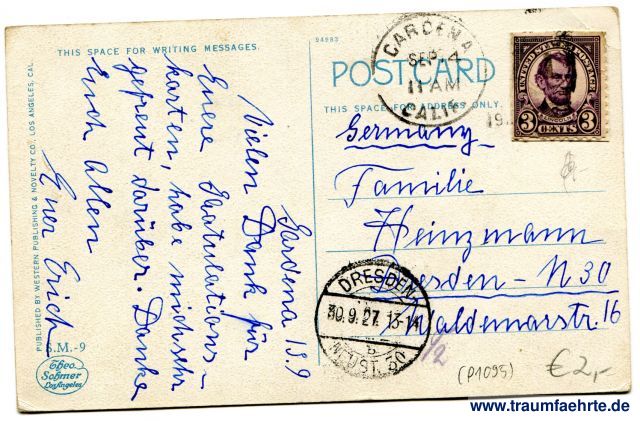 THIS SPACE FOR WRITING MESSAGES.
Gardena 13.9
Vielen Dank für
Euere Gratulations-
karten, habe mich sehr
gefreut darüber. Danke
Euch Allen
Euer Erich
PUBLISHED BY WESTERN PUBLISHING & NOVELTY CO., LOS ANGELES, CAL.
S.M.-9
Theo. Sohmer
Los Angeles
94983
POST CARD
THIS SPACE FOR ADDRESS ONLY.
GARDENA
SEP 14
11 AM
CALIF.
UNITED STATES POSTAGE
LINCOLN
3 CENTS 3
Germany
Familie
Heinzmann
Dresden - N 30
Waldemarstr. 16
DRESDEN
30.9.27. 13-14
NEUST. 30
(P1095)
€2,-
www.traumfaehrte.de